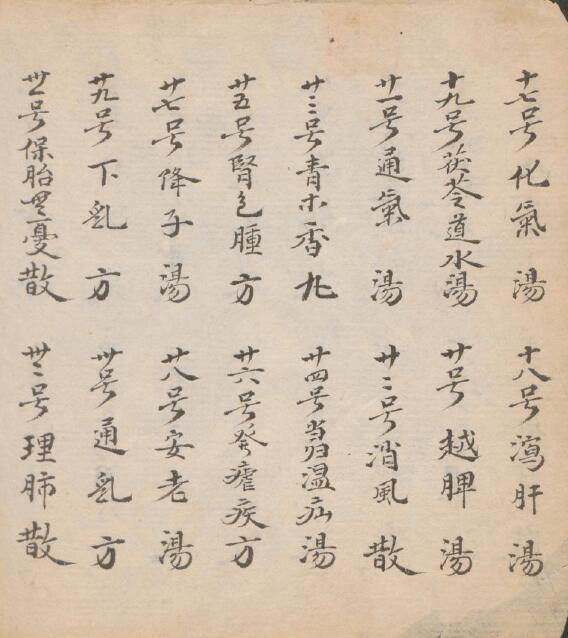 十七号化氣湯
十八号瀉肝湯
十九号茯苓道水湯
廿号越脾湯
廿一号通氣湯
廿二号消風散
廿三号青木香丸
廿四号当归温疝湯
廿五号腎皀腫方
廿六号癸瘧疾方
廿七号降子湯
廿八号安老湯
廿九号下乱方
卅号通乱方
卅一号保胎無憂散
卅二号理肺散